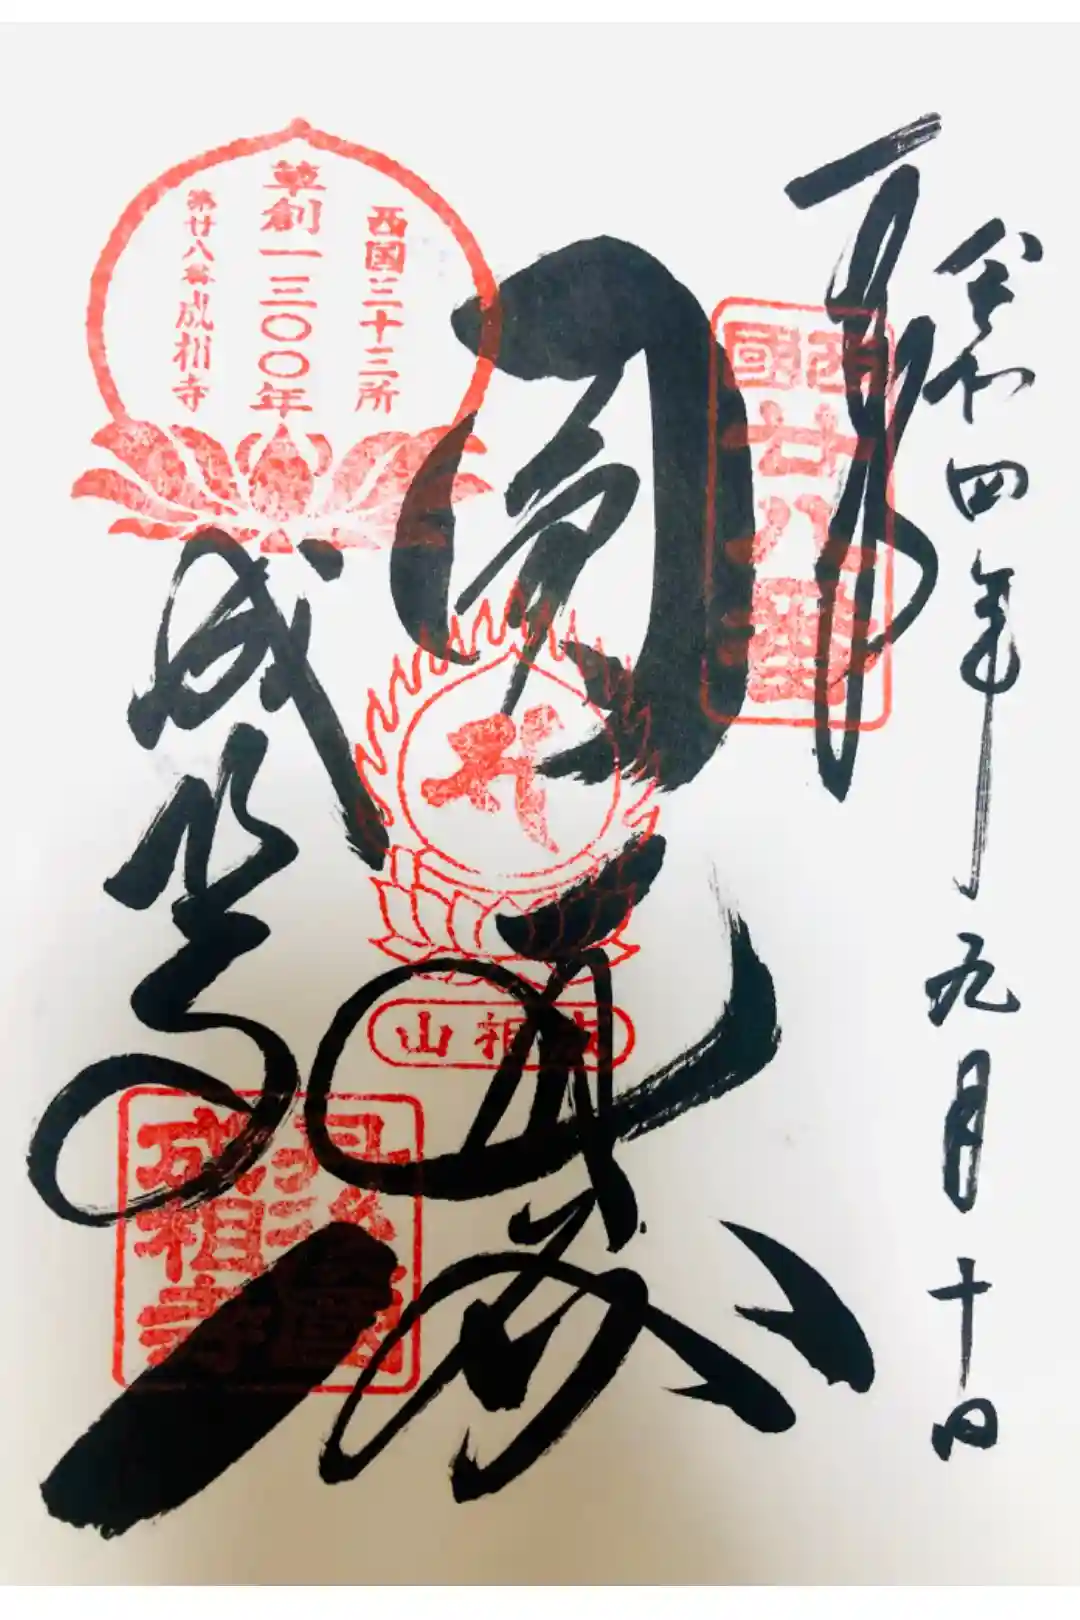 令和四年九月十日
西國廿八番
西国三十三所
草創一三〇〇年
第廿八番成相寺
成相山
成相寺
丹後國
成相寺